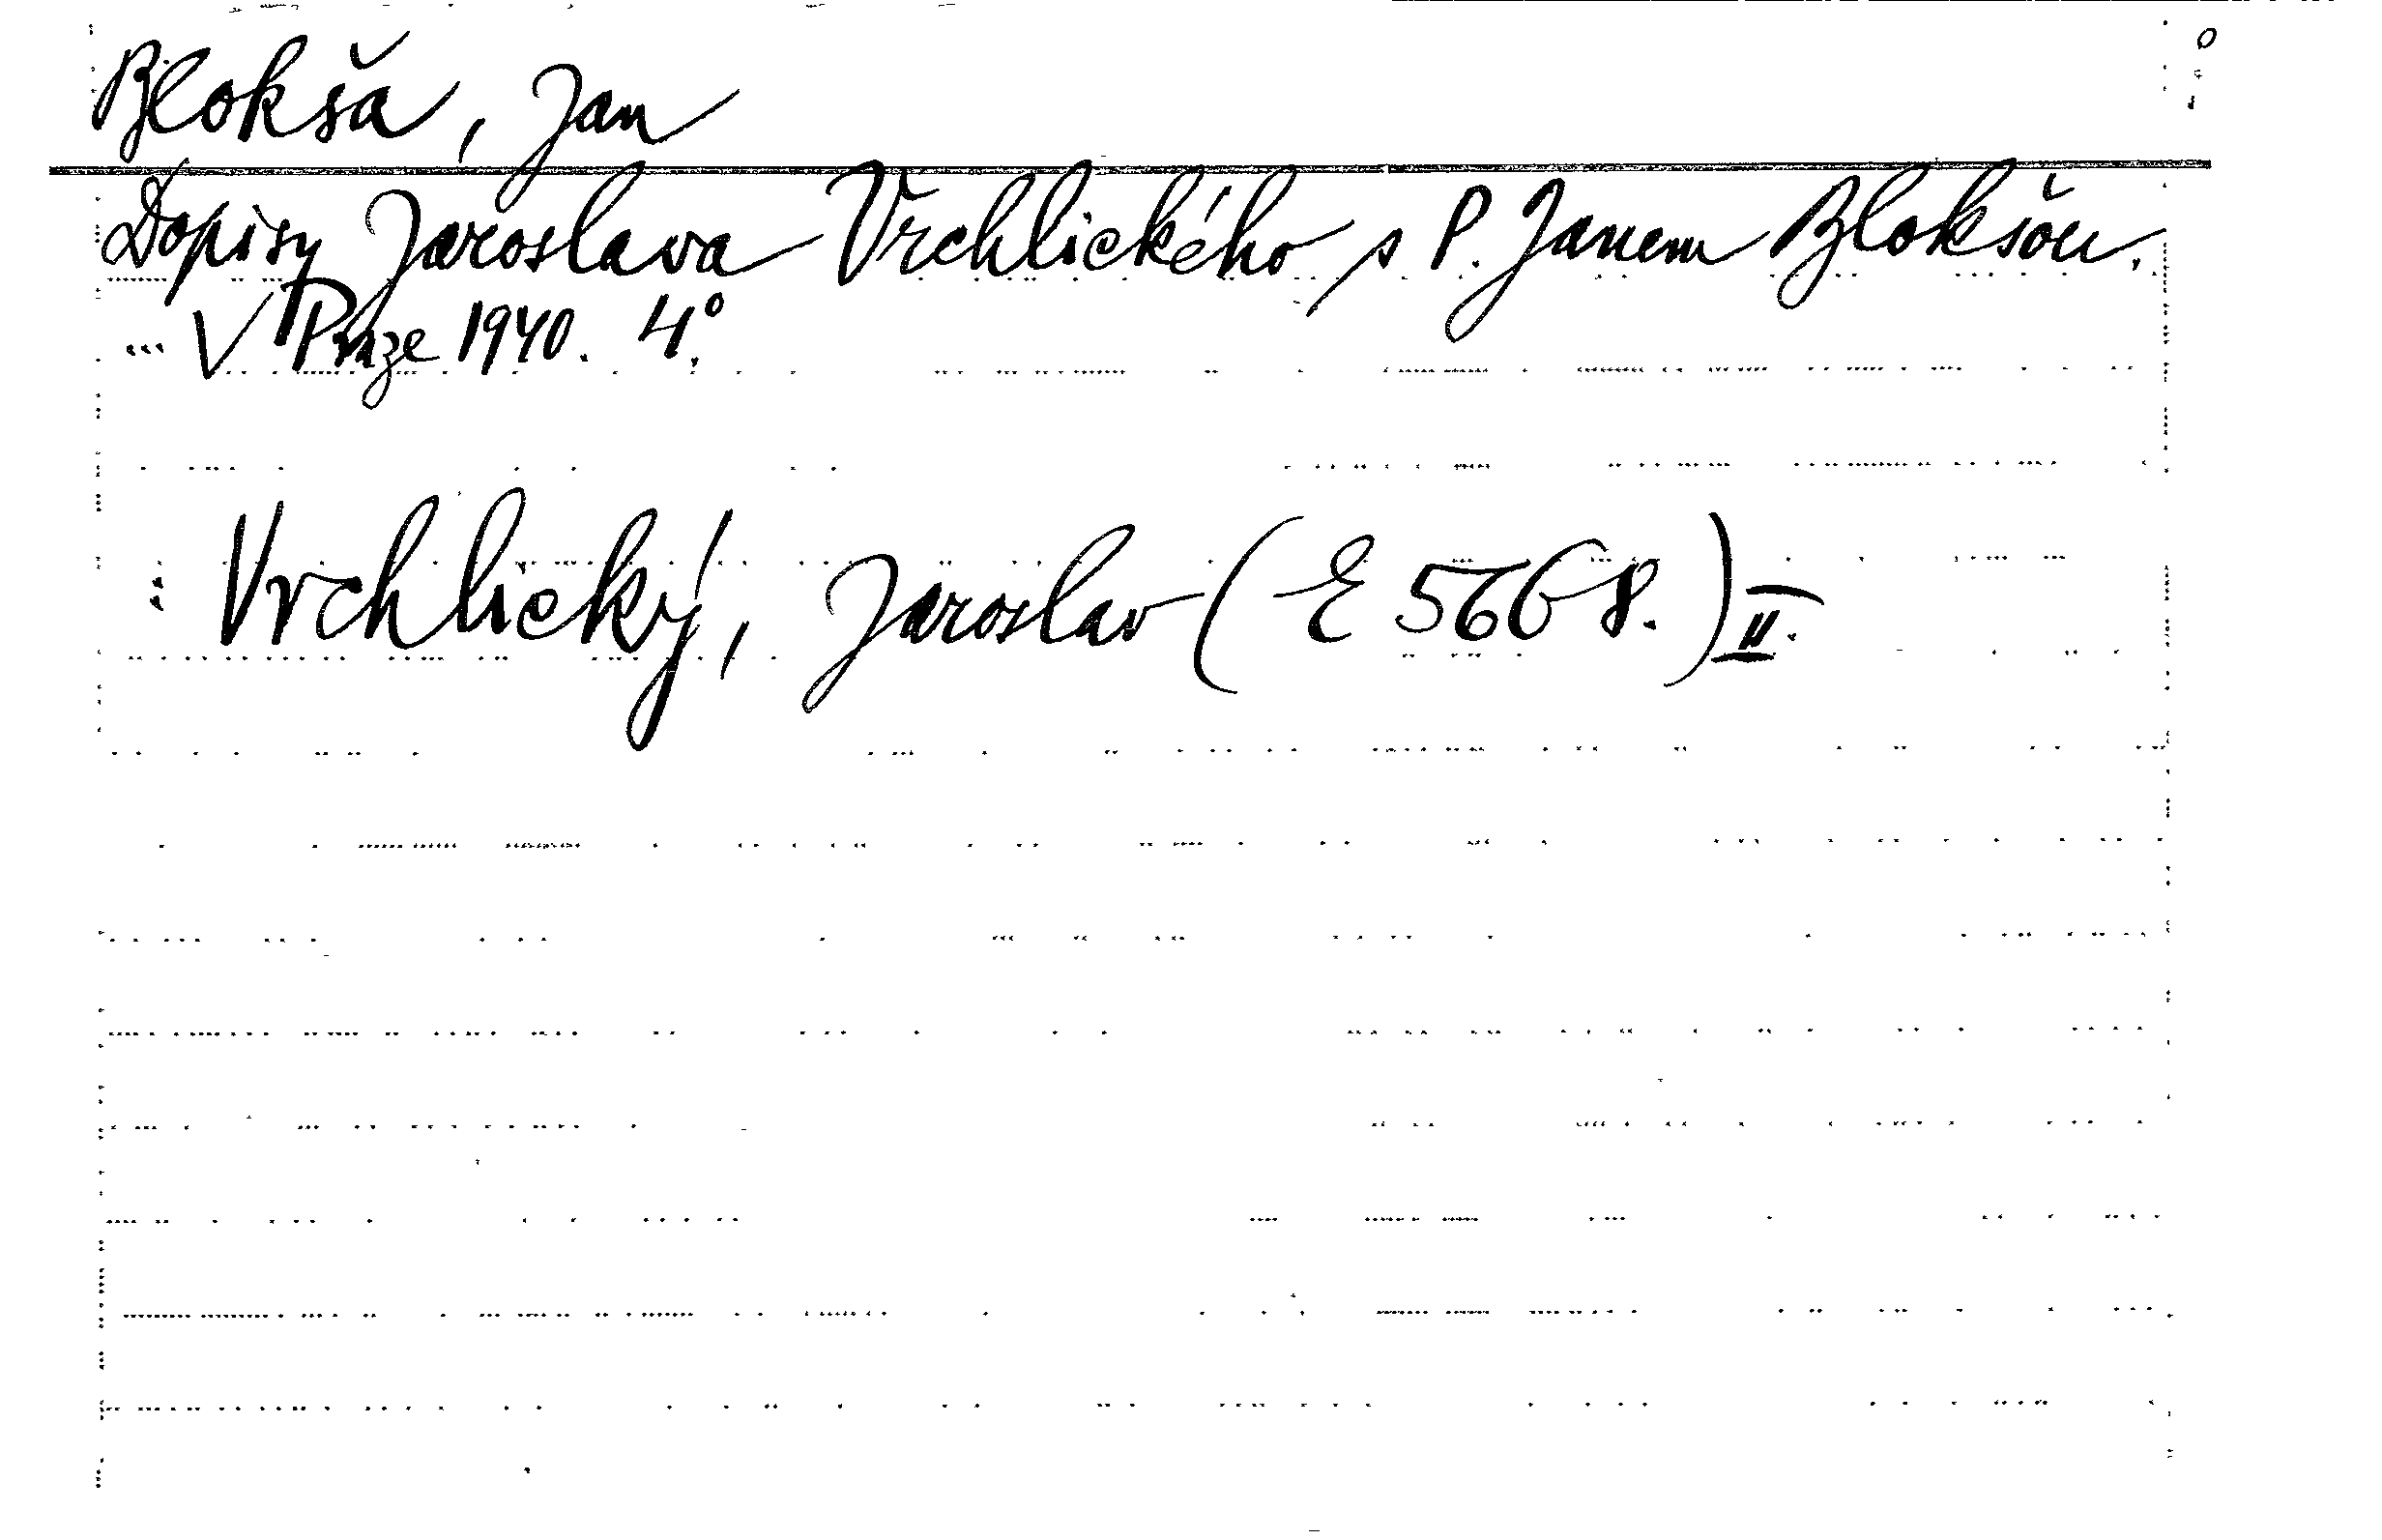 Blokša, Jan
Dopisy Jaroslava Vrchlického s P. Janem Blokšou.
V Praze 1940. 4°.
Vrchlický, Jaroslav (E 566 8.) II.